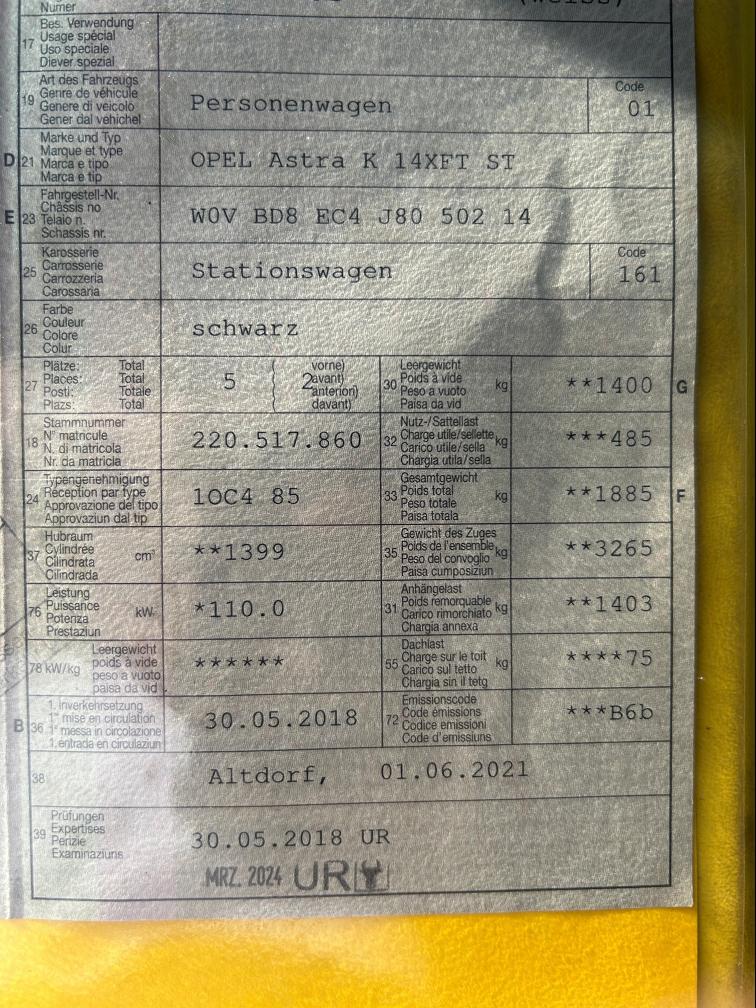 Numer
17 Bes. Verwendung
Usage spécial
Uso speciale
Diever spezial
19 Art des Fahrzeugs
Genre de véhicule
Genere di veicolo
Gener dal vehichel
Personenwagen
Code
01
D 21 Marke und Typ
Marque et type
Marca e tipo
Marca e tip
OPEL Astra K 14XFT ST
E 23 Fahrgestell-Nr.
Châssis no
Telaio n.
Schassis nr.
W0V BD8 EC4 J80 502 14
25 Karosserie
Carrosserie
Carrozzeria
Carossaria
Stationswagen
Code
161
26 Farbe
Couleur
Colore
Colur
schwarz
27 Plätze: Total
Places: Total
Posti: Totale
Plazs: Total
5
2
vorne)
avant)
anteriori)
davant)
30 Leergewicht
Poids à vide
Peso a vuoto
Paisa da vid
kg
**1400 G
18 Stammnummer
N° matricule
N. di matricola
Nr. da matricla
220.517.860
32 Nutz-/Sattellast
Charge utile/sellette
Carico utile/sella
Chargia utila/sella
kg
***485
24 Typengenehmigung
Réception par type
Approvazione del tipo
Approvaziun dal tip
1OC4 85
33 Gesamtgewicht
Poids total
Peso totale
Paisa totala
kg
**1885 F
37 Hubraum
Cylindrée
Cilindrata
Cilindrada
cm³
**1399
35 Gewicht des Zuges
Poids de l'ensemble
Peso del convoglio
Paisa cumposiziun
kg
**3265
76 Leistung
Puissance
Potenza
Prestaziun
kW
*110.0
31 Anhängelast
Poids remorquable
Carico rimorchiato
Chargia annexa
kg
**1403
78 kW/kg
Leergewicht
poids à vide
peso a vuoto
paisa da vid
******
55 Dachlast
Charge sur le toit
Carico sul tetto
Chargia sin il tetg
kg
****75
B 36 1. Inverkehrsetzung
1re mise en circulation
1a messa in circolazione
1. entrada en circulaziun
30.05.2018
72 Emissionscode
Code émissions
Codice emissioni
Code d'emissiuns
***B6b
38 Altdorf, 01.06.2021
39 Prüfungen
Expertises
Perizie
Examinaziuns
30.05.2018 UR
MRZ. 2024 UR